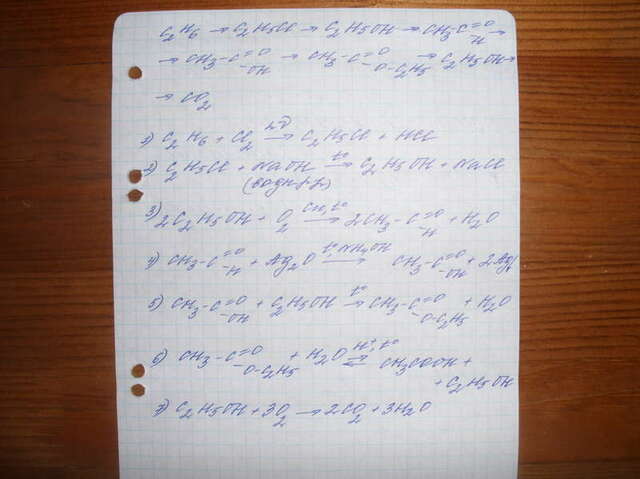 C2H6 → C2H5Cl → C2H5OH → CH3-C=O -H →
→ CH3-C=O -OH → CH3-C=O -O-C2H5 → C2H5OH →
→ CO2
1) C2H6 + Cl2 hν→ C2H5Cl + HCl
2) C2H5Cl + NaOH t°→ C2H5OH + NaCl
(водн. р-р)
3) 2C2H5OH + O2 Cu, t°→ 2CH3-C=O -H + H2O
4) CH3-C=O -H + Ag2O t°, NH4OH→ CH3-C=O -OH + 2Ag↓
5) CH3-C=O -OH + C2H5OH t°→ CH3-C=O -O-C2H5 + H2O
6) CH3-C=O -O-C2H5 + H2O H+, t°⇄ CH3COOH +
+ C2H5OH
7) C2H5OH + 3O2 → 2CO2 + 3H2O